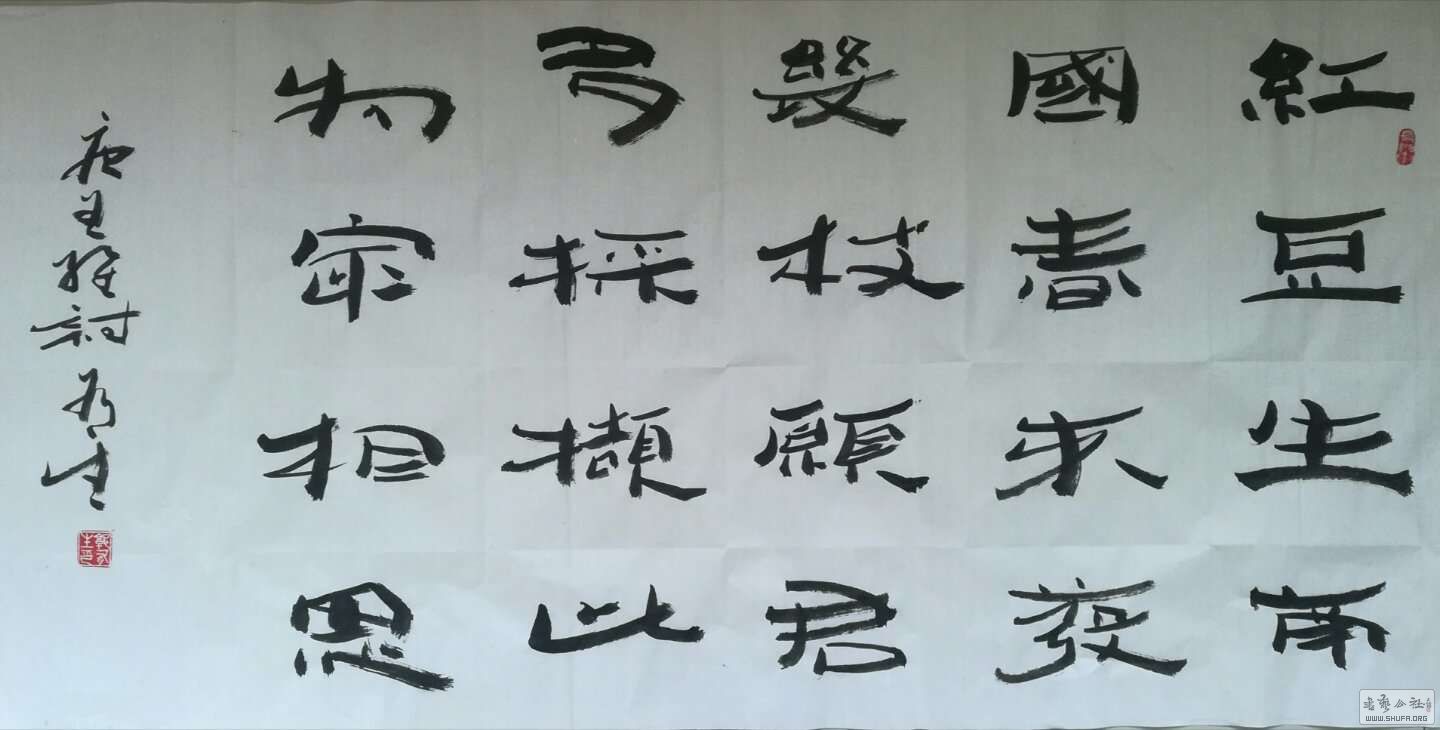 紅豆生南
國春來發
幾枝願君
多採擷此
物最相思
唐王維詩 生
書藝公社
WWW.SHUFA.ORG